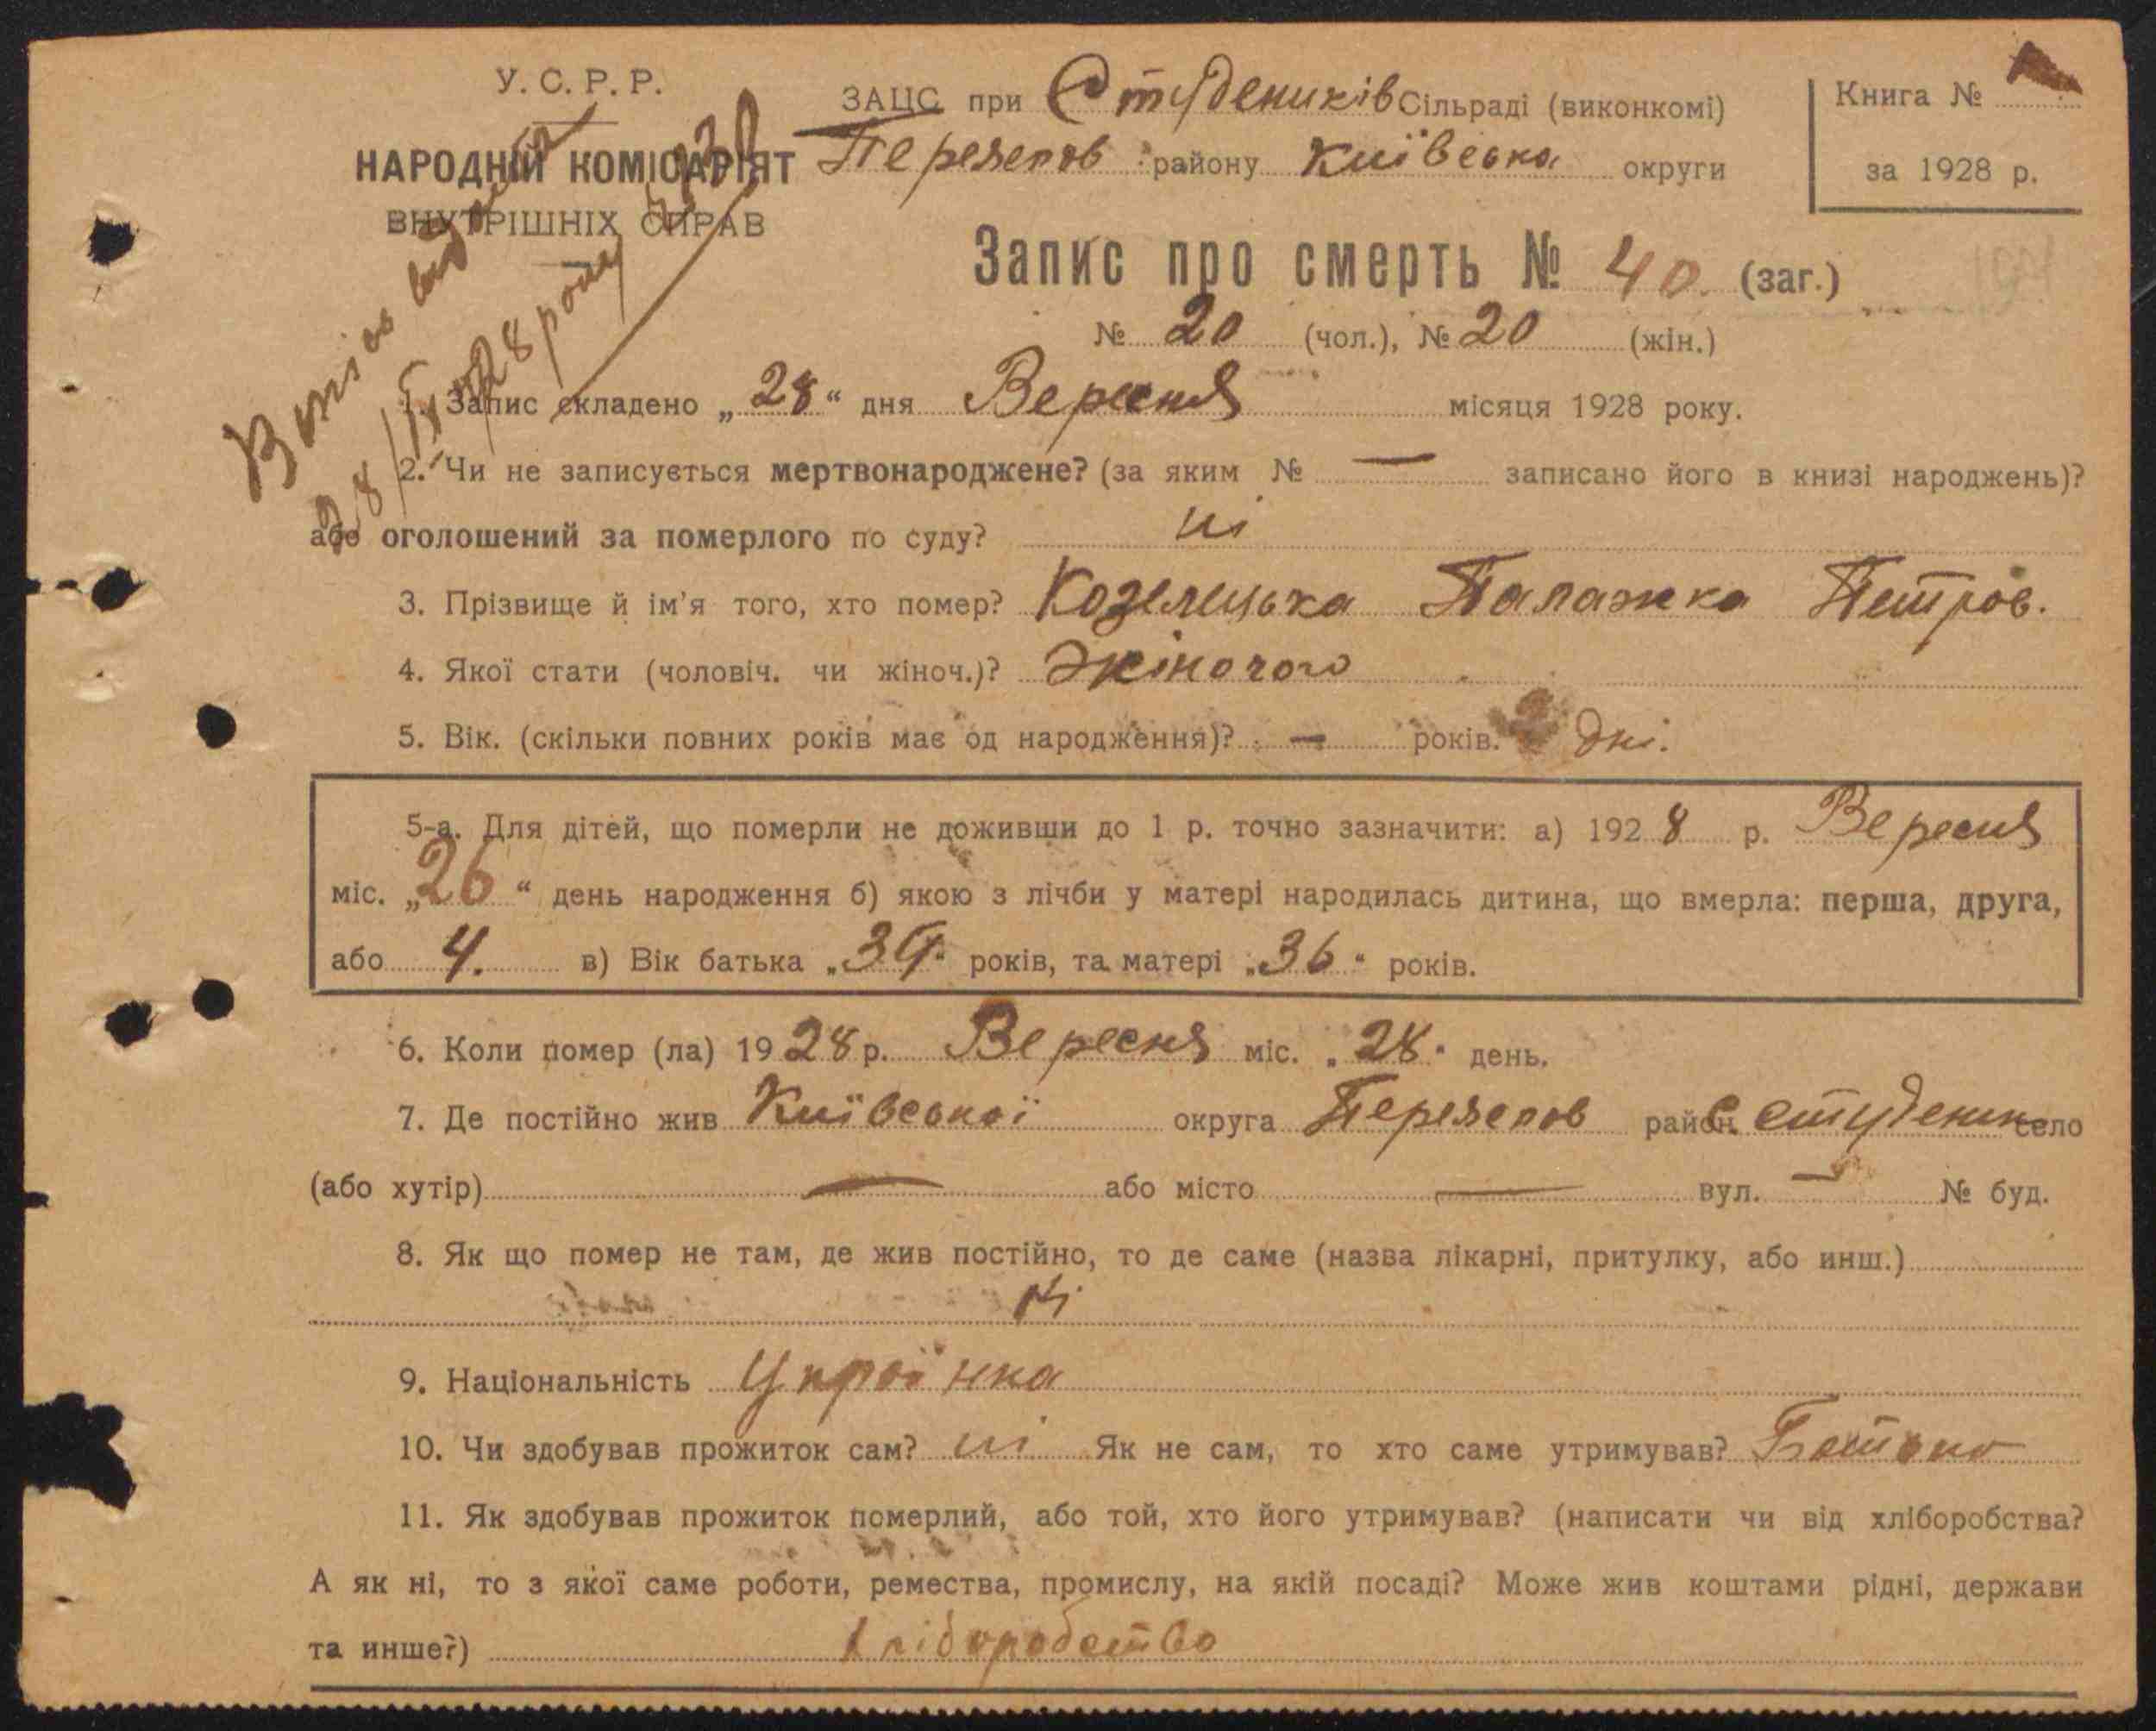 У. С. Р. Р.
НАРОДНІЙ КОМІСАРІЯТ
ВНУТРІШНІХ СПРАВ
ЗАЦС при Студеників Сільраді (виконкомі)
Переяслов району Київська округи
Книга №
за 1928 р.
Запис про смерть № 40. (заг.)
№ 20 (чол.), № 20 (жін.)
28/IX 1928 року
1. Запис складено „28“ дня Вересня місяця 1928 року.
2. Чи не записується мертвонароджене? (за яким № — записано його в книзі народжень)?
або оголошений за померлого по суду? ні
3. Прізвище й ім'я того, хто помер? Козелецька Палажка Петров.
4. Якої стати (чоловіч. чи жіноч.)? Жіночого
5. Вік. (скільки повних років має од народження)? — років. 2 дні.
5-а. Для дітей, що померли не доживши до 1 р. точно зазначити: а) 1928 р. Вересня
міс. „26“ день народження б) якою з лічби у матері народилась дитина, що вмерла: перша, друга,
або 4. в) Вік батька „39“ років, та матері „36“ років.
6. Коли помер (ла) 1928 р. Вересня міс. „28“ день.
7. Де постійно жив Київської округа Переяслов район с. Студеник село
(або хутір) — або місто — вул. — № буд.
8. Як що помер не там, де жив постійно, то де саме (назва лікарні, притулку, або инш.)
ні
9. Національність Українка
10. Чи здобував прожиток сам? ні Як не сам, то хто саме утримував? Батько
11. Як здобував прожиток померлий, або той, хто його утримував? (написати чи від хліборобства?
А як ні, то з якої саме роботи, ремества, промислу, на якій посаді? Може жив коштами рідні, держави
та инше?) Хліборобство